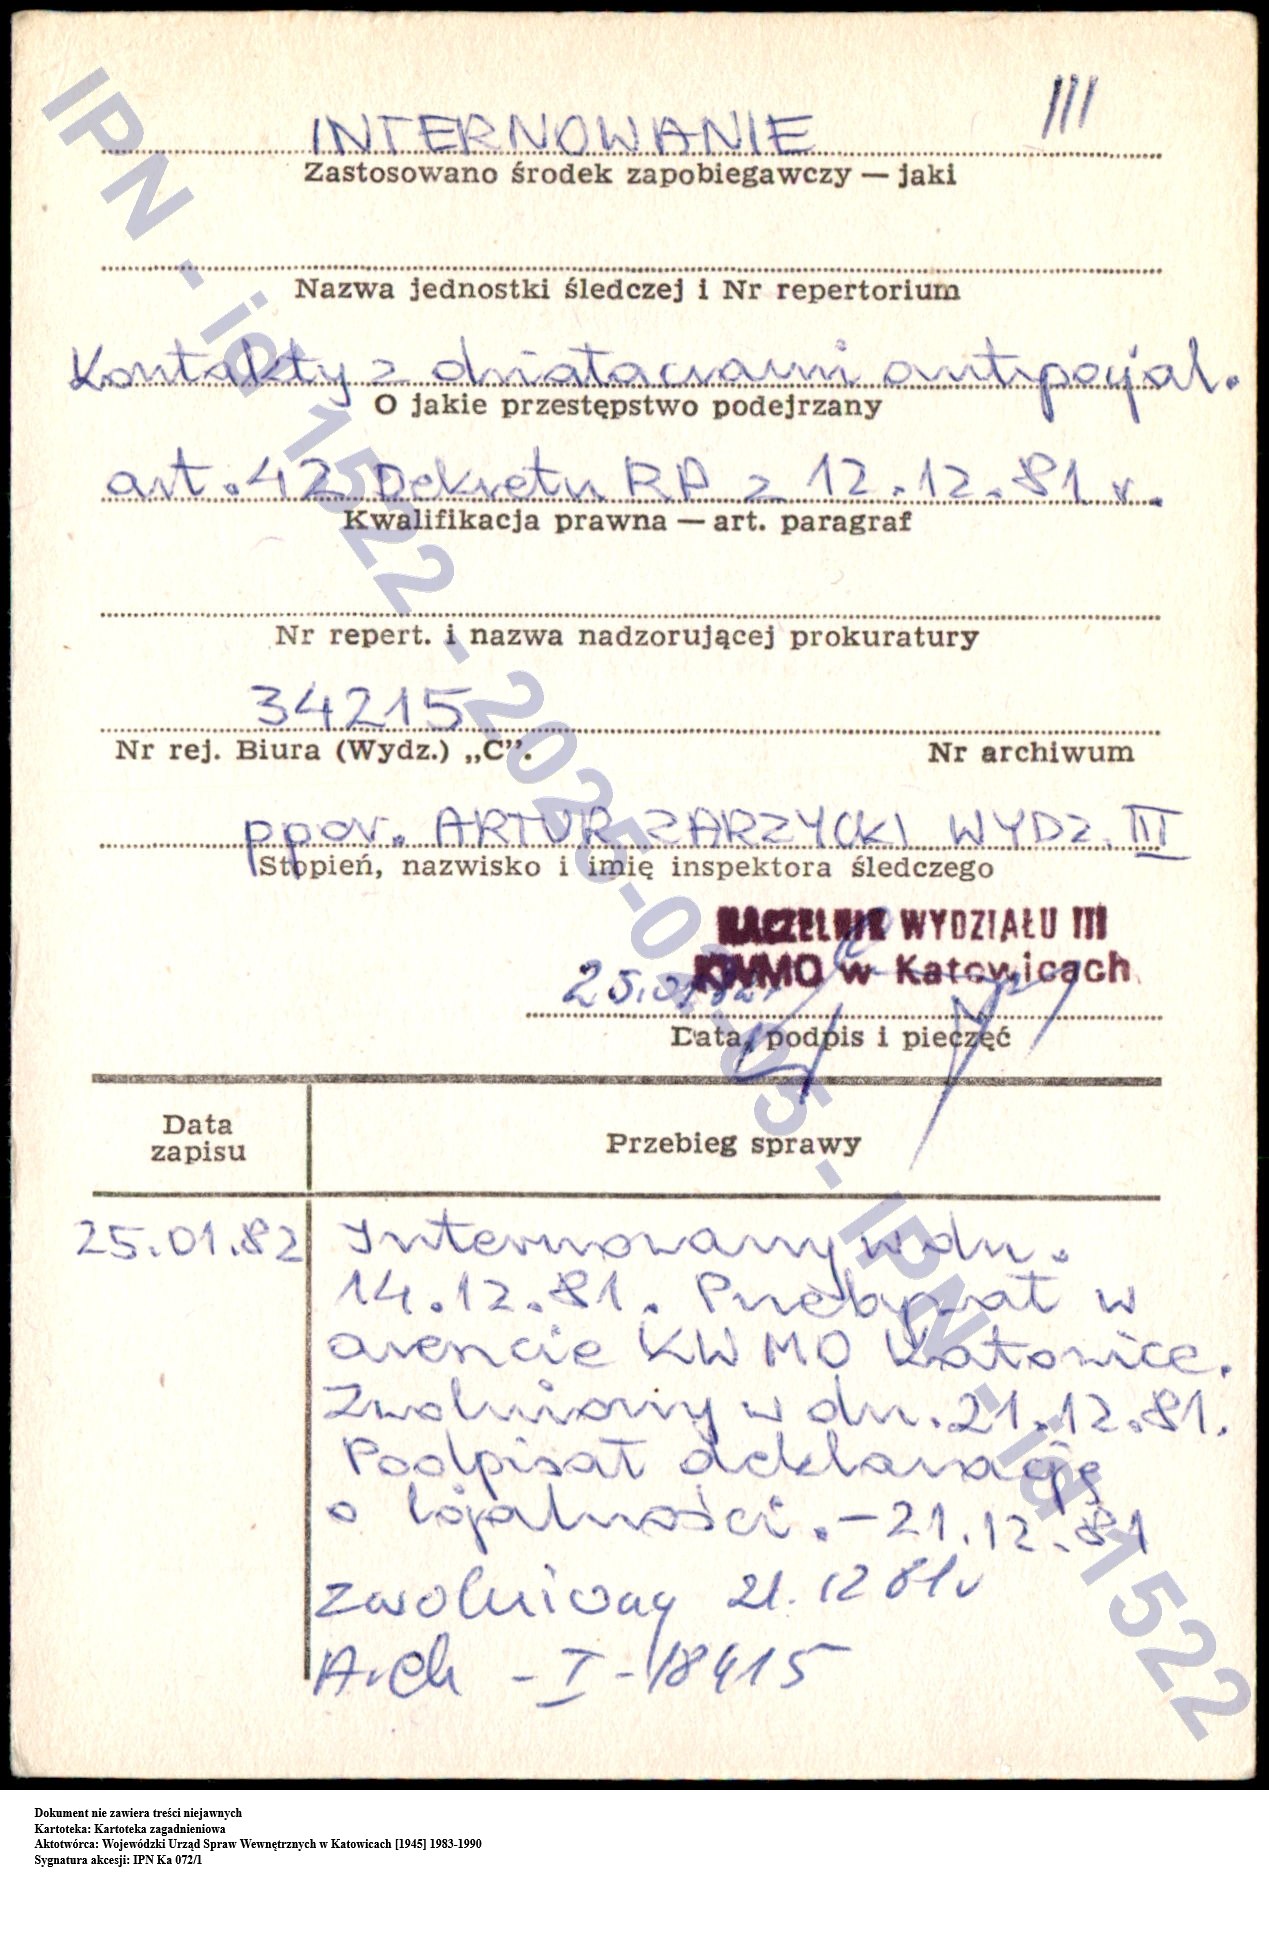 III
INTERNOWANIE
Zastosowano środek zapobiegawczy — jaki
Nazwa jednostki śledczej i Nr repertorium
Kontakty z działaczami antysocjal.
O jakie przestępstwo podejrzany
art. 42 Dekretu RP z 12.12.81 r.
Kwalifikacja prawna — art. paragraf
Nr repert. i nazwa nadzorującej prokuratury
34215
Nr rej. Biura (Wydz.) „C”. Nr archiwum
ppor. ARTUR ZARZYCKI WYDZ. III
Stopień, nazwisko i imię inspektora śledczego
NACZELNIK WYDZIAŁU III
KWMO w Katowicach
25.01.82r
Data, podpis i pieczęć
Data zapisu Przebieg sprawy
25.01.82 Internowany w dn.
14.12.81. Przebywał w
areszcie KW MO Katowice.
Zwolniony w dn. 21.12.81.
Podpisał deklarację
o lojalności. - 21.12.81
zwolniony 21.12 81r
Arch - I - 18415
IPN - id 1522 - 2025-02-05 - IPN - id 1522
Dokument nie zawiera treści niejawnych
Kartoteka: Kartoteka zagadnieniowa
Aktotwórca: Wojewódzki Urząd Spraw Wewnętrznych w Katowicach [1945] 1983-1990
Sygnatura akcesji: IPN Ka 072/1